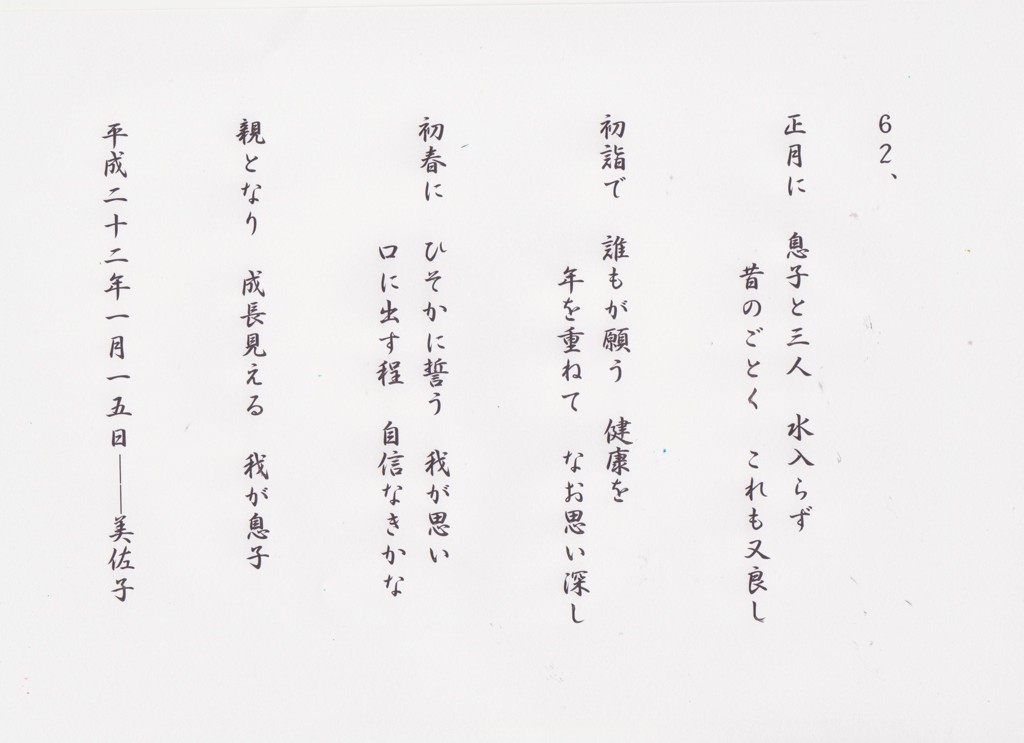 62、
正月に　息子と三人　水入らず
昔のごとく　これも又良し
初詣で　誰もが願う　健康を
年を重ねて　なお思い深し
初春に　ひそかに誓う　我が思い
口に出す程　自信なきかな
親となり　成長見える　我が息子
平成二十二年一月一五日――美佐子